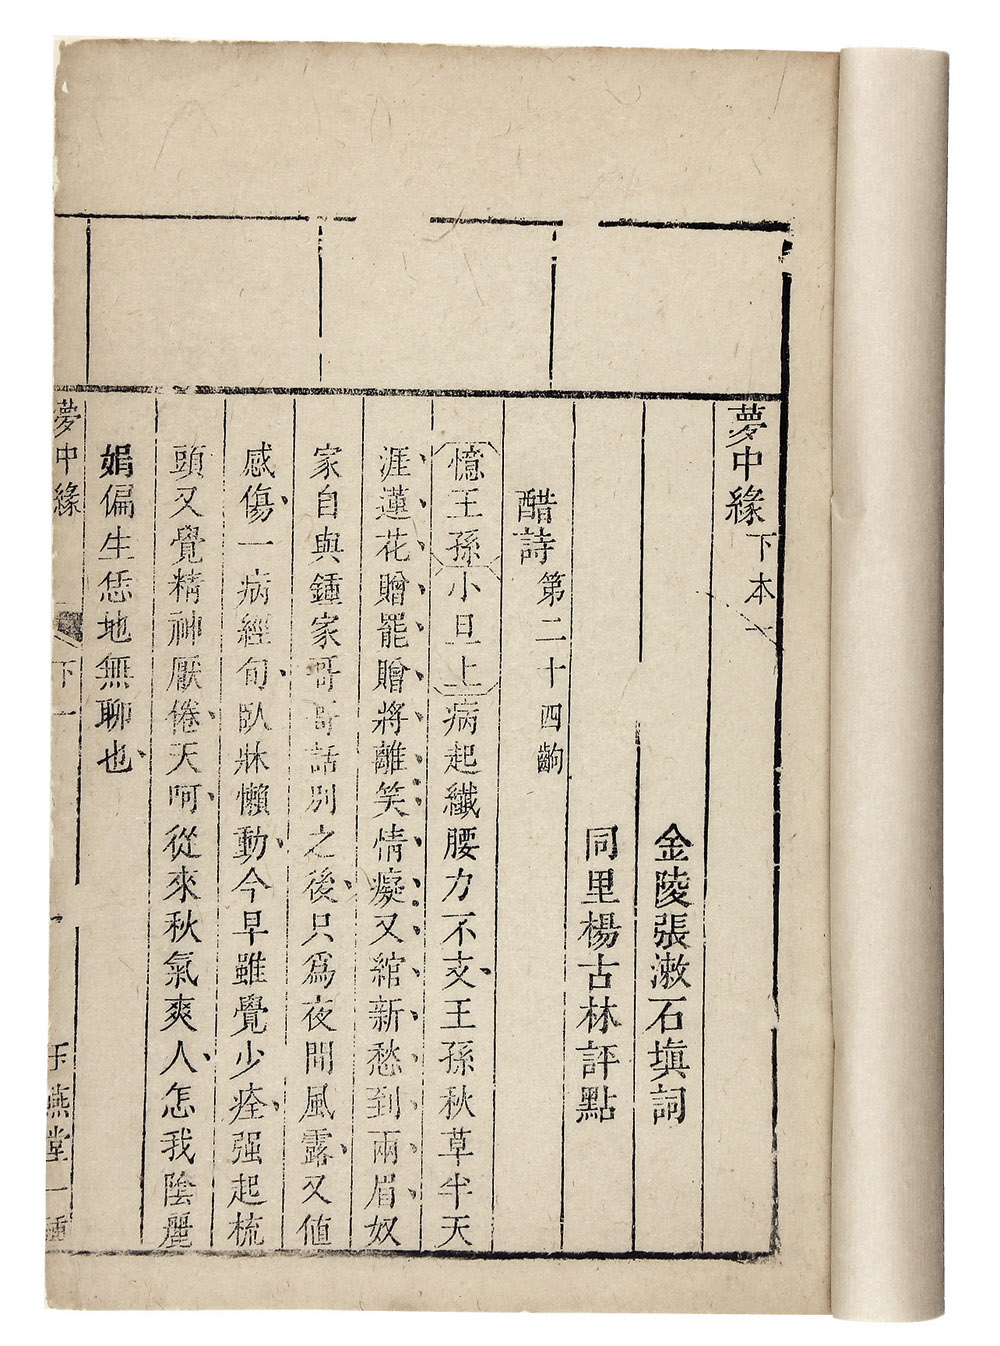 夢中緣 下本 一
金陵張漱石填詞
同里楊古林評點
醋詩 第二十四齣
憶王孫 小旦上 病起纖腰力不支、王孫秋草半天
涯、蓮花贈罷贈將離、笑情癡又綰新愁到兩眉、奴
家自與鍾家哥哥話別之後、只爲夜間風露、又值
感傷、一病經旬、臥牀懶動、今早雖覺少痊、强起梳
頭又覺精神厭倦、天呵、從來秋氣爽人、怎我陰麗
娟偏生恁地無聊也、
夢中緣 下 一 玉燕堂一種